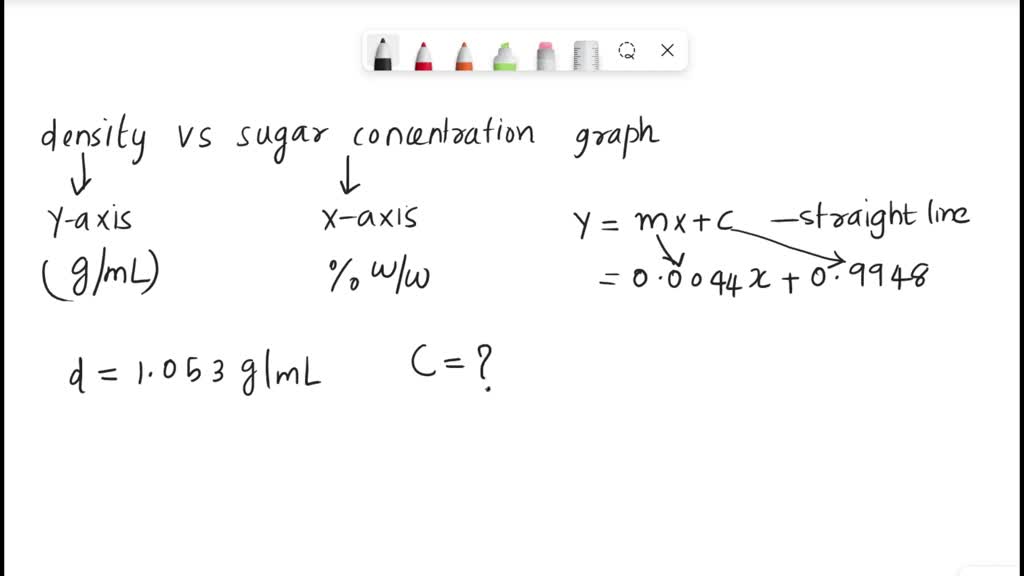 density vs sugar concentration graph
↓ ↓
y-axis x-axis y = mx+c —straight line
(g/mL) % w/w = 0.0044x + 0.9948
d = 1.053 g/mL C = ?